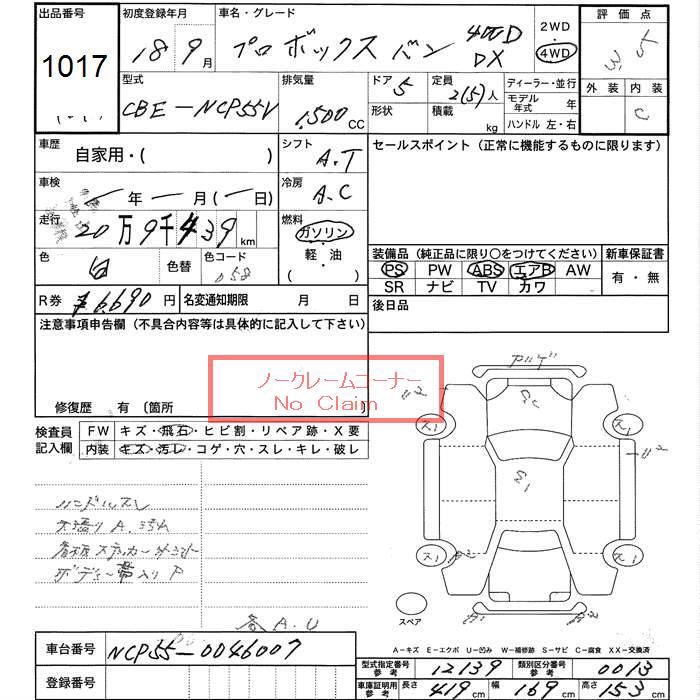 出品番号
1017
初度登録年月
18 9月
車名・グレード
プロボックス バン 4WD DX
2WD
4WD
評価点
3.5
型式
CBE-NCP55V
排気量
1,500 CC
ドア 5
形状
定員 2(5)人
積載 kg
ディーラー・並行
モデル年式 年
ハンドル 左・右
外装 内装
C
車歴 自家用・( )
シフト A.T
セールスポイント(正常に機能するものに限ります)
車検 年 月(一日)
冷房 A.C
走行 20万9千439km
燃料 ガソリン
軽・油
( )
色 白 色替
色コード 058
装備品(純正品に限り○をつけてください)
新車保証書
PS PW ABS エアB AW
SR ナビ TV カワ
有・無
R券 ¥6.690円
名変通知期限 月 日
後日品
注意事項申告欄(不具合内容等は具体的に記入して下さい)
ノークレームコーナー
No Claim
修復歴 有 〔箇所 〕
検査員記入欄
FW キズ・飛石・ヒビ割・リペア跡・X要
内装 キズ・汚レ・コゲ・穴・スレ・キレ・破レ
ハンドルスレ
スペア
A-キズ E-エクボ U-凹み W-補修跡 S-サビ C-腐食 XX-交換済
各A.U
車台番号 NCP55-0046007
登録番号
型式指定番号参考 12139
類別区分番号参考 0013
車庫証明用参考 長さ 419cm 幅 169cm 高さ 153cm